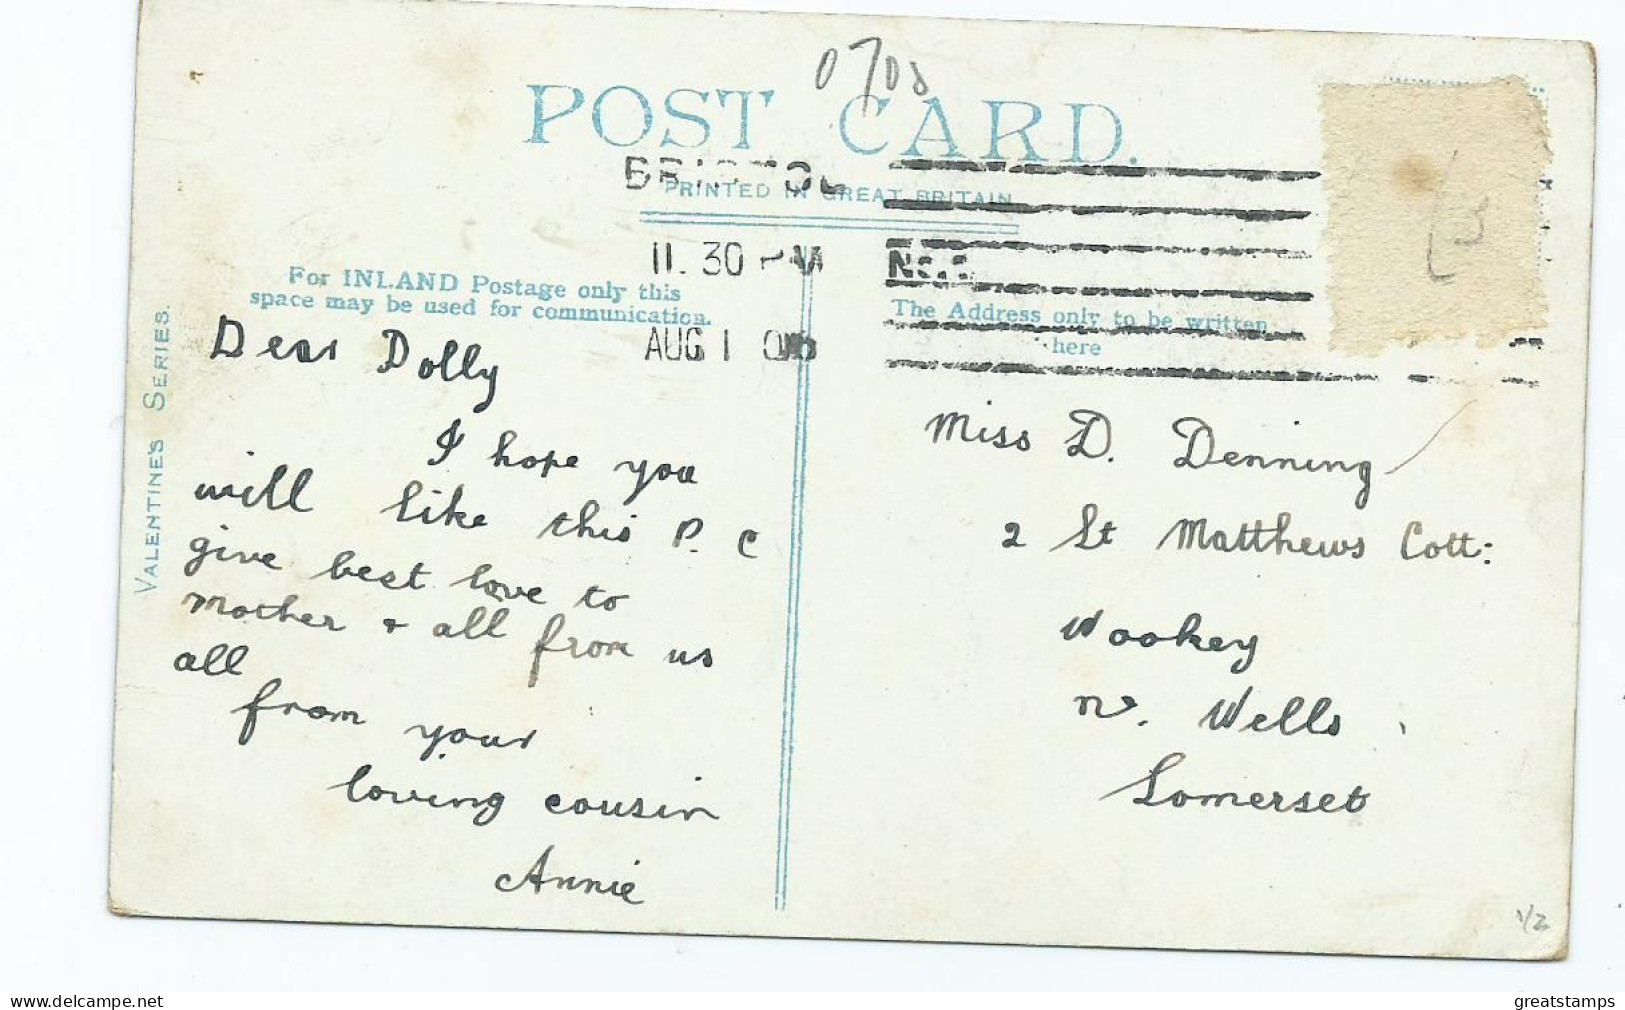 0708
POST CARD.
BRISTOL
PRINTED IN GREAT BRITAIN
11.30 PM
AUG 1 06
For INLAND Postage only this
space may be used for communication.
The Address only to be written
here
VALENTINE'S SERIES.
Dear Dolly
I hope you
will like this P.C
give best love to
mother & all from us
all
from your
loving cousin
Annie
Miss D. Denning
2 St Matthews Cott:
Wookey
nr. Wells
Somerset
1/2
www.delcampe.net
greatstamps